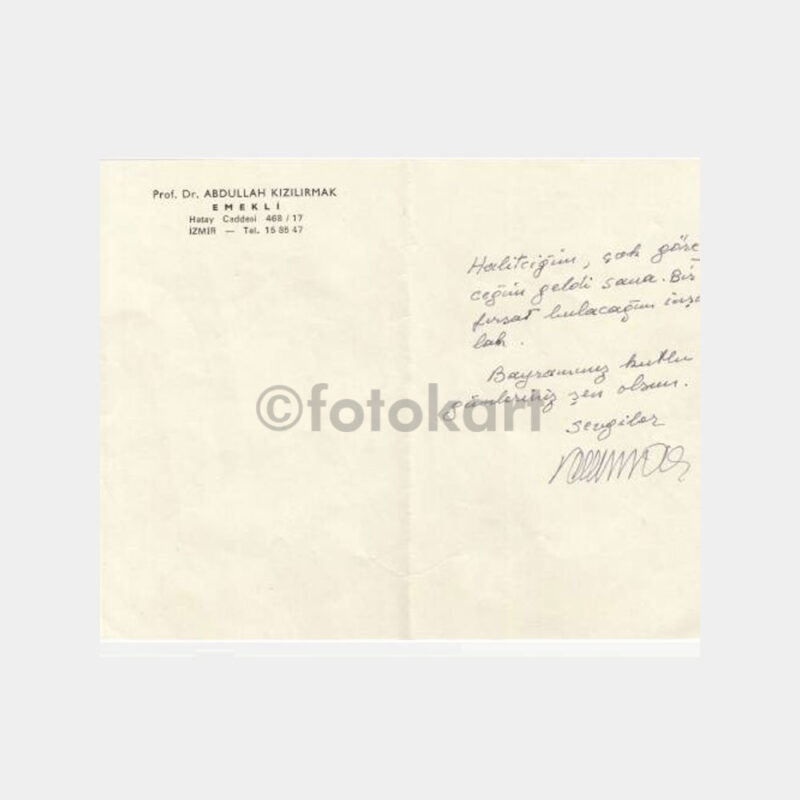 Prof. Dr. ABDULLAH KIZILIRMAK
EMEKLİ
Hatay Caddesi 468/17
İZMİR — Tel. 15 85 47
Halitciğim, çok göre
ceğim geldi sana. Bir
fırsat bulacağım inşa
lah.
Bayramınız kutlu
günleriniz şen olsun.
Sevgiler
©fotokart